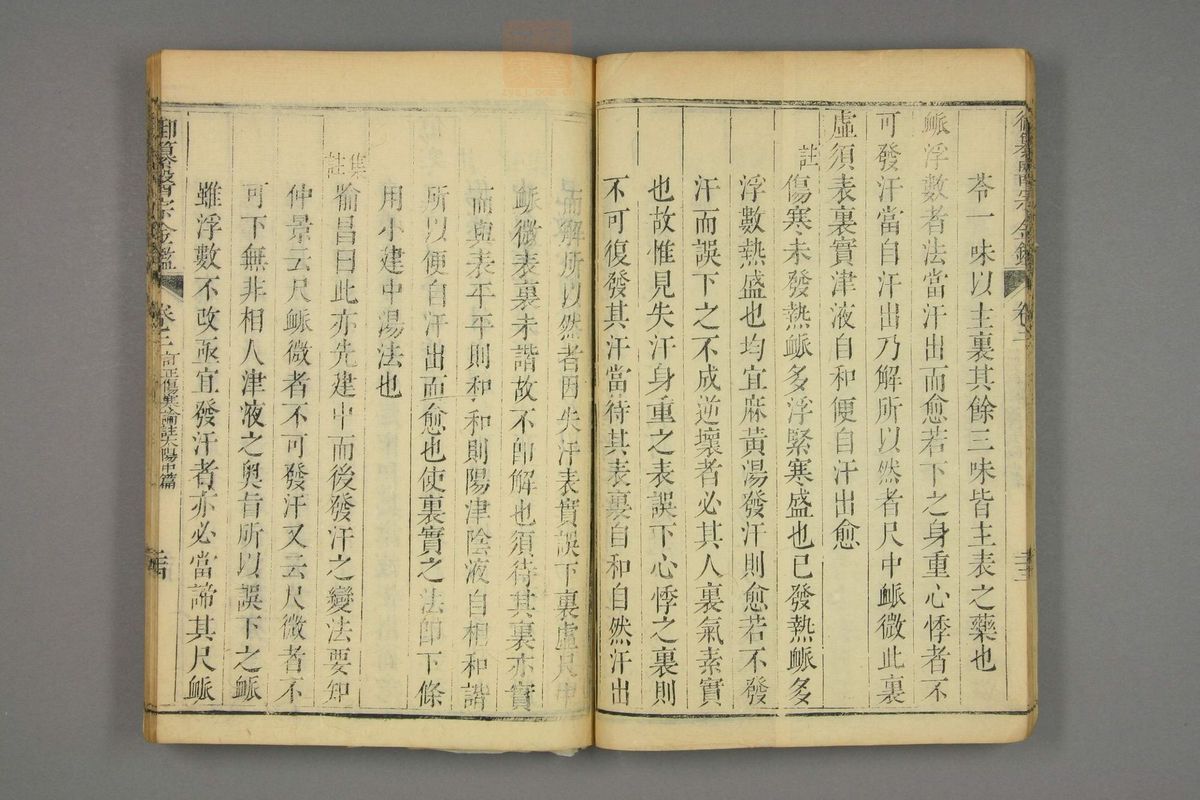 苓一味以主裏其餘三味皆主表之藥也
脈浮數者法當汗出而愈若下之身重心悸者不
可發汗當自汗出乃解所以然者尺中脈微此裏
虛須表裏實津液自和便自汗出愈
註傷寒未發熱脈多浮緊寒盛也已發熱脈多
浮數熱盛也均宜麻黃湯發汗則愈若不發
汗而誤下之不成逆壞者必其人裏氣素實
也故惟見失汗身重之表誤下心悸之裏則
不可復發其汗當待其表裏自和自然汗出
而解所以然者因失汗表實誤下裏虛尺中
脈微表裏未諧故不即解也須待其裏亦實
而與表平平則和和則陽津陰液自相和諧
所以便自汗出而愈也使裏實之法即下條
用小建中湯法也
集註喻昌曰此亦先建中而後發汗之變法要知
仲景云尺脈微者不可發汗又云尺微者不
可下無非相人津液之奧旨所以誤下之脈
雖浮數不改亟宜發汗者亦必當諦其尺脈
御纂醫宗金鑑
卷二
訂正傷寒論註太陽中篇